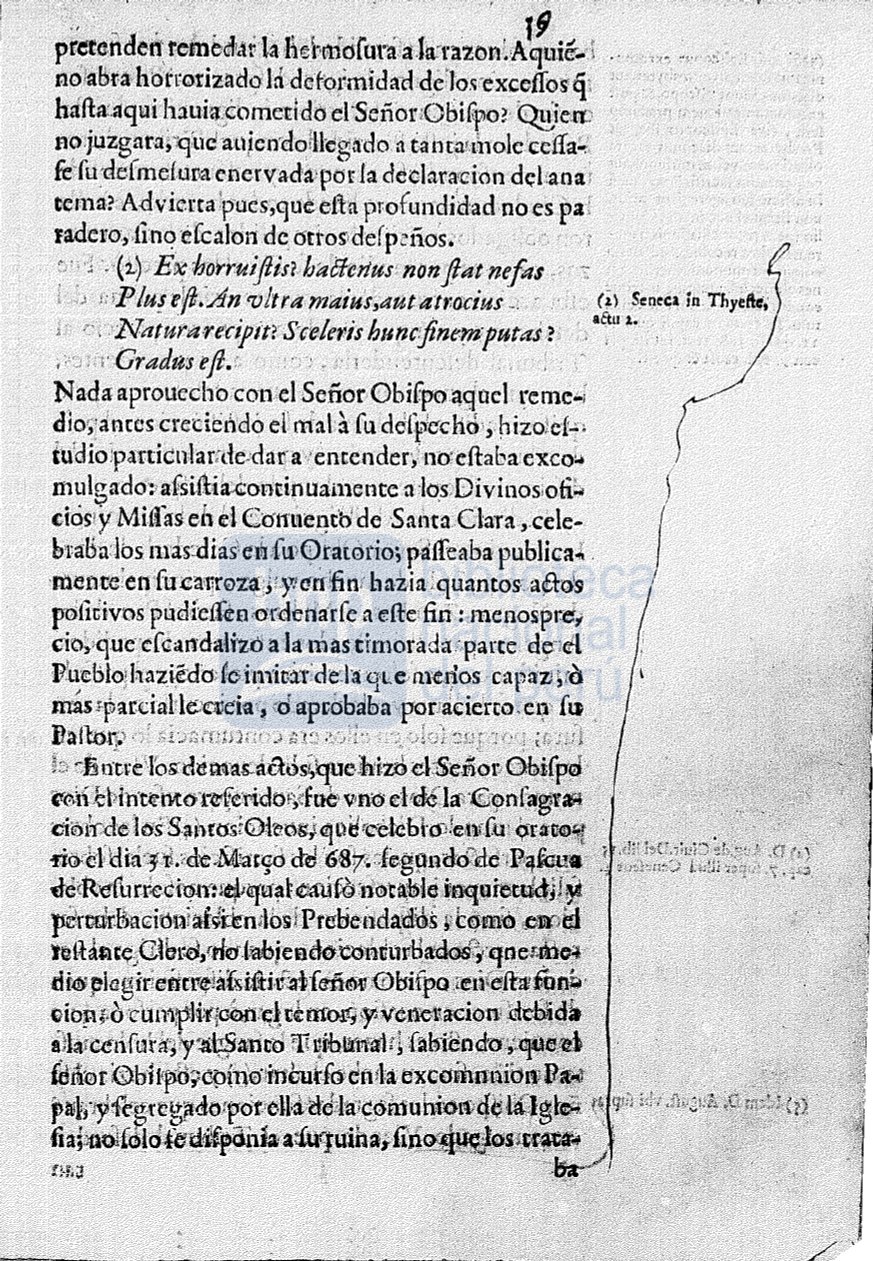 19
pretenden remedar la hermosura a la razon. Aquiẽ-
no abra horrorizado la deformidad de los excessos q̃
hasta aqui hauia cometido el Señor Obispo? Quien
no juzgara, que auiendo llegado a tanta mole cessa-
se su desmesura enervada por la declaracion del ana
tema? Advierta pues, que esta profundidad no es pa
radero, sino escalon de otros despeños.
(2) Ex horruistis? hactenus non stat nefas
Plus est. An vltra maius, aut atrocius
Natura recipit? Sceleris hunc finem putas?
Gradus est.
(2) Seneca in Thyeste,
actu 2.
Nada aprouecho con el Señor Obispo aquel reme-
dio, antes creciendo el mal à su despecho, hizo es-
tudio particular de dar a entender, no estaba exco-
mulgado: assistia continuamente a los Divinos ofi-
cios y Missas en el Conuento de Santa Clara, cele-
braba los mas dias en su Oratorio; passeaba publica-
mente en su carroza, y en fin hazia quantos actos
positivos pudiessen ordenarse a este fin: menospre,
cio, que escandalizò a la mas timorada parte de el
Pueblo haziẽdo se imitar de la que menos capaz, ò
mas parcial le creia, o aprobaba por acierto en su
Pastor.
Entre los demas actos, que hizo el Señor Obispo
con el intento referido, fue vno el de la Consagra-
cion de los Santos Oleos, que celebro en su orato-
rio el dia 31. de Março de 687. segundo de Pascua
de Resurrecion: el qual causò notable inquietud, y
perturbacion assi en los Prebendados, como en el
restante Clero, no sabiendo conturbados, que me-
dio elegir entre assistir al señor Obispo en esta fun-
cion, ò cumplir con el temor, y veneracion debida
a la censura, y al Santo Tribunal, sabiendo, que el
señor Obispo, como incurso en la excomnnion Pa-
pal, y segregado por ella de la comunion de la Igle-
sia; no solo se disponia a su ruina, sino que los trata-
ba
biblioteca
nacional
del perú